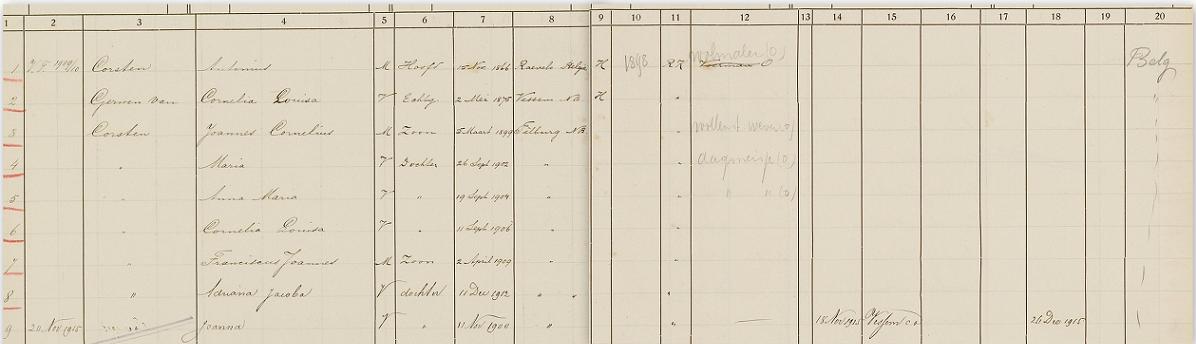 1 2 3 4 5 6 7 8 9 10 11 12 13 14 15 16 17 18 19 20
1 Corsten Antonius M Hooft 15 Nov 1866 Raevels Belgie H 1898 RK Voerman O Belg
2 Gerwen van Cornelia Louisa V Echtg. 2 Mei 1875 Vessem NB H "
3 Corsten Joannes Cornelius M Zoon 5 Maart 1899 Tilburg NB " "
4 " Maria V Dochter 26 Sept 1902 " " dagmeisje (o)
5 " " Anna Maria V " 19 Sept 1904 " " " " (o)
6 " Cornelia Louisa V " 11 Sept 1906 " "
7 " Franciscus Joannes M Zoon 2 April 1909 " "
8 " Adriana Jacoba V dochter 11 Dec 1912 " " "
9 20 Nov 1915 Joanna V " 11 Nov 1900 " " — 18 Nov 1915 Vessem c.a. 26 Dec 1915